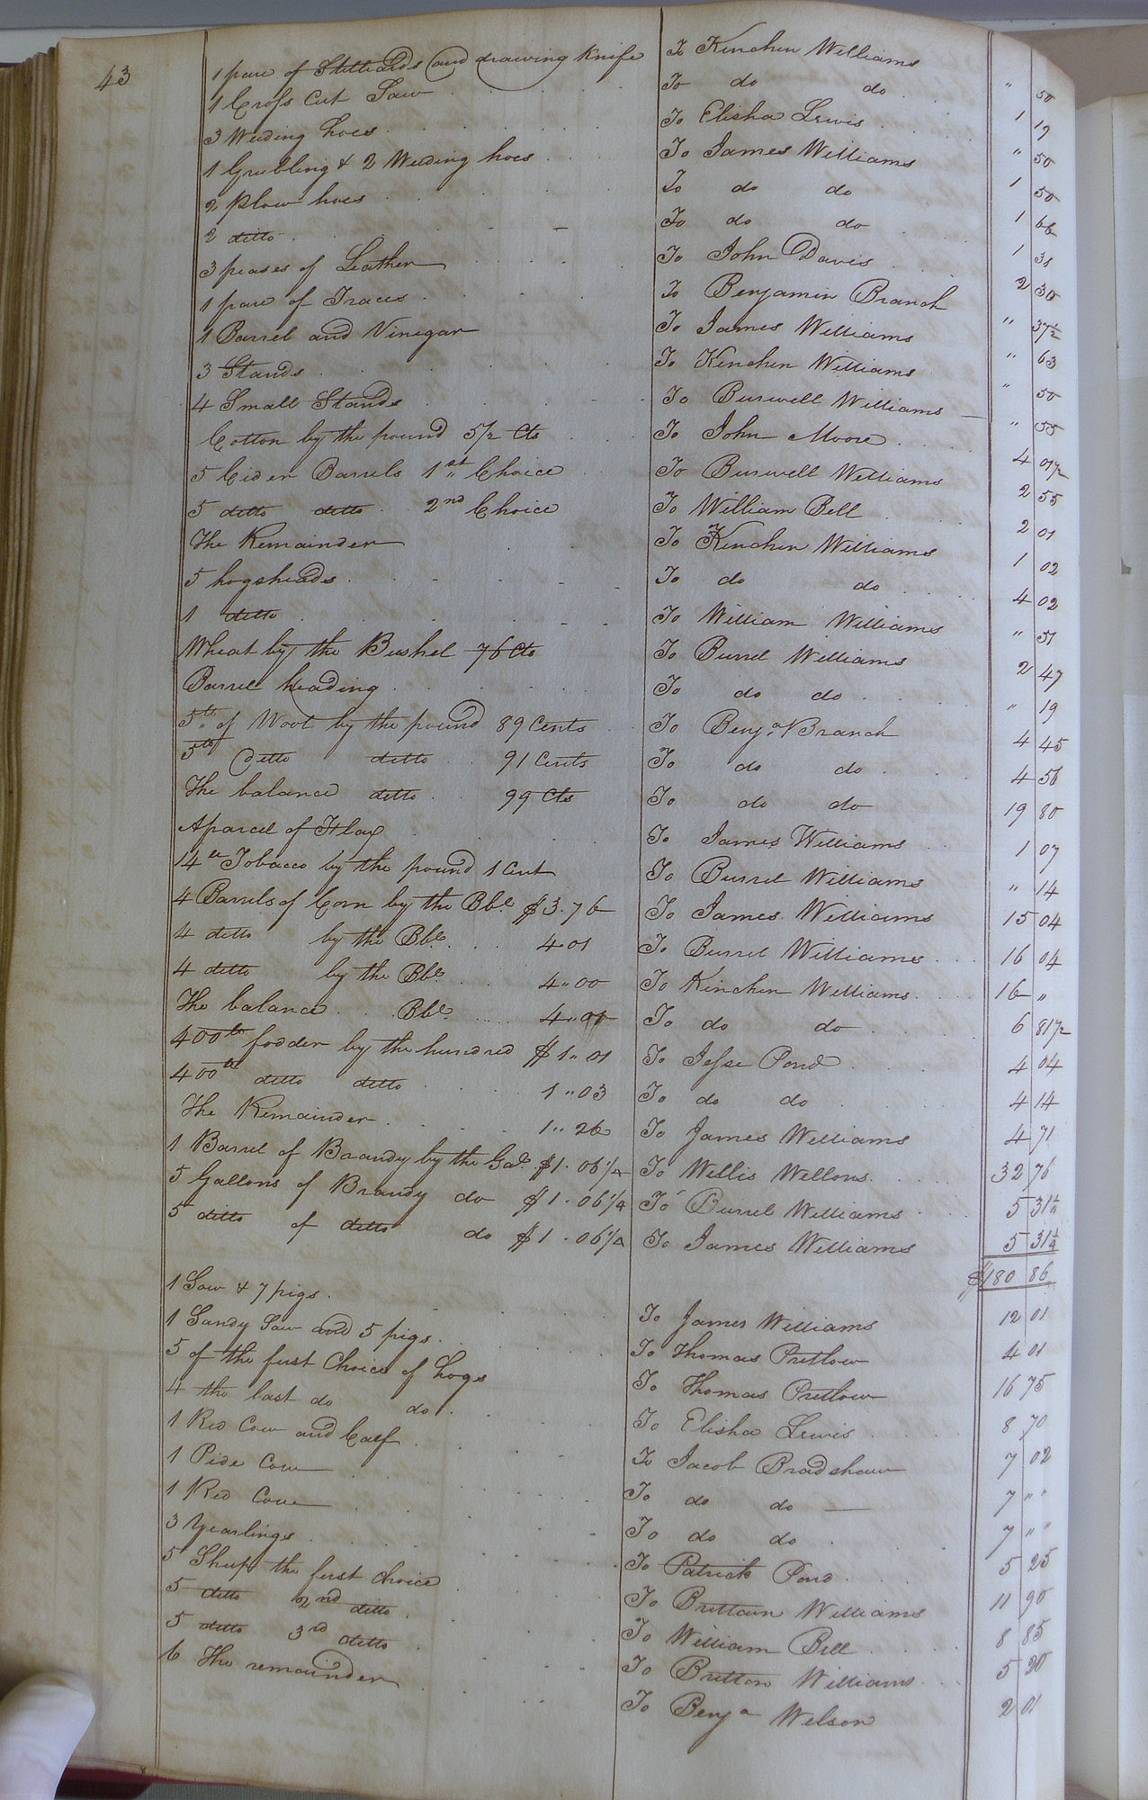 43
1 pare of Stilliards and drawing Knife To Kinchen Williams " 50
1 Cross Cut Saw To do do 1 19
3 Weeding hoes To Elisha Lewis " 50
1 Grubbing & 2 Weeding hoes To James Williams 1 50
2 plow hoes To do do 1 66
2 ditto To do do 1 31
3 peases of Leather To John Davis 2 30
1 pare of Traces To Benjamin Branch " 37½
1 Barrel and Vinegar To James Williams " 63
3 Stands To Kinchen Williams " 50
4 Small Stands To Burwell Williams " 55
Cotton by the pound 5½ Cts To John Moore 4 07½
5 Cider Barrels 1st Choice To Burwell Williams 2 55
5 ditto ditto 2nd Choice To William Bell 2 01
The Remainder To Kinchen Williams 1 02
5 hogsheads To do do 4 02
1 ditto To William Williams " 51
Wheat by the Bushel 76 Cts To Burrel Williams 2 47
Barrel heading To do do " 19
5 lb of Wool by the pound 89 Cents To Benja Branch 4 45
5 lb ditto ditto 91 Cents To do do 4 56
The balance ditto 99 Cts To do do 19 80
A parcel of Flax To James Williams 1 07
14 lb Tobacco by the pound 1 Cent To Burrel Williams " 14
4 Barrels of Corn by the Bbl $3.76 To James Williams 15 04
4 ditto by the Bbl 4 01 To Burrel Williams 16 04
4 ditto by the Bbl 4"00 To Kinchen Williams 16 "
The balance Bbl 4"01 To do do 6 81½
400 lb fodder by the hundred $1"01 To Jesse Pond 4 04
400 lb ditto ditto 1"03 To do do 4 14
The Remainder 1"26 To James Williams 4 71
1 Barrel of Brandy by the Gal. $1.06¼ To Willis Wellons 32 76
5 Gallons of Brandy do $1.06¼ To Burrel Williams 5 31¼
5 ditto of ditto do $1.06¼ To James Williams 5 31¼
$180 86
1 Sow & 7 pigs To James Williams 12 01
1 Sandy Sow and 5 pigs To Thomas Pretlow 4 01
5 of the first Choice of hogs To Thomas Pretlow 16 75
4 the last do do To Elisha Lewis 8 70
1 Red Cow and Calf To Jacob Bradshaw 7 02
1 Pide Cow To do do 7 " "
1 Red Cow To do do 7 " "
3 Yearlings To Patrick Pond 5 25
5 Sheep the first choice To Brittain Williams 11 90
5 ditto 2nd ditto To William Bell 8 85
5 ditto 3rd ditto To Britton Williams 5 20
6 The remainder To Benja Wilson 2 01